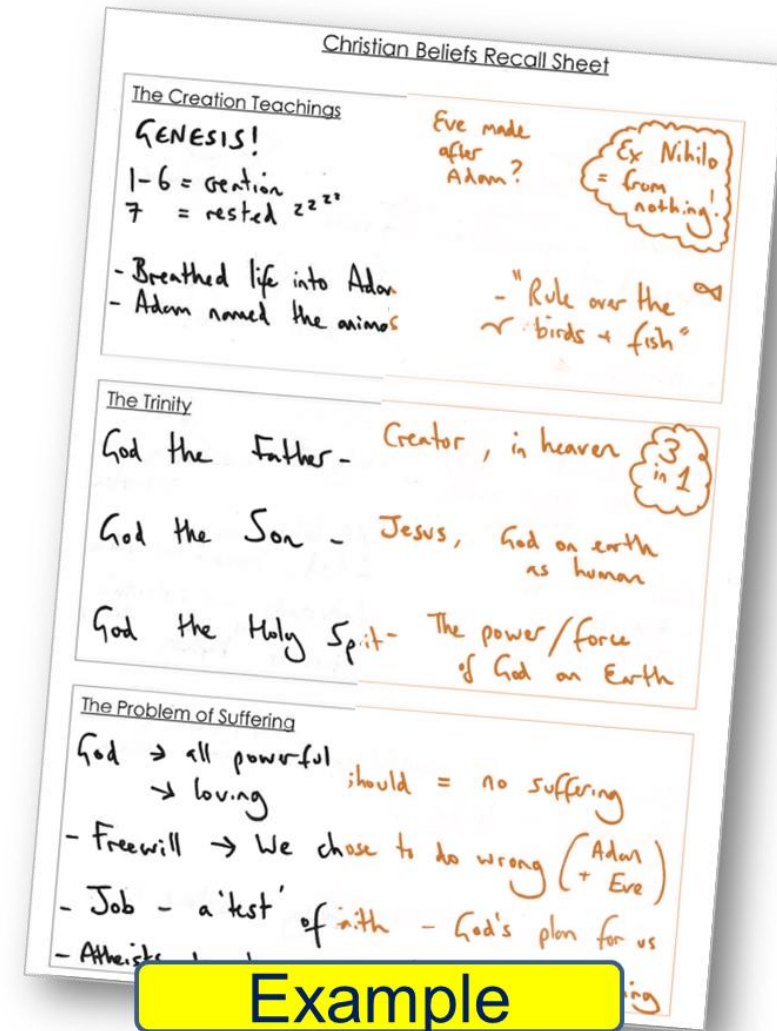 Christian Beliefs Recall Sheet
The Creation Teachings
GENESIS!
1-6 = creation
7 = rested zzzz
- Breathed life into Adam
- Adam named the animals
Eve made
after
Adam?
Ex Nihilo
= from
nothing!
- "Rule over the
birds + fish"
The Trinity
God the Father - Creator, in heaven
3
in 1
God the Son - Jesus, God on earth
as human
God the Holy Spirit - The power/force
of God on Earth
The Problem of Suffering
God → all powerful
→ loving
should = no suffering
- Freewill → We chose to do wrong (Adam
+ Eve)
- Job - a 'test' of faith - God's plan for us
- Atheists
Example